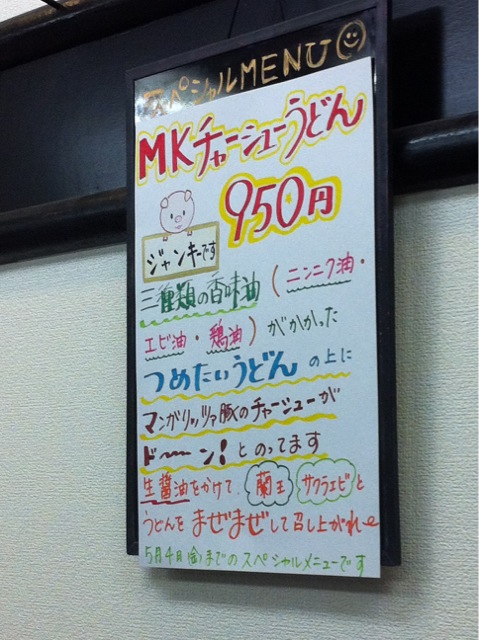 スペシャルMENU
MKチャーシューうどん
950円
ジャンキーです
三種類の香味油（ニンニク油・
エビ油・鶏油）がかかった
つめたいうどんの上に
マンガリッツァ豚のチャーシューが
ド〜〜ン！とのってます
生醤油をかけて、蘭王 サクラエビと
うどんをまぜまぜして召し上がれ〜
5月4日(金)までのスペシャルメニューです